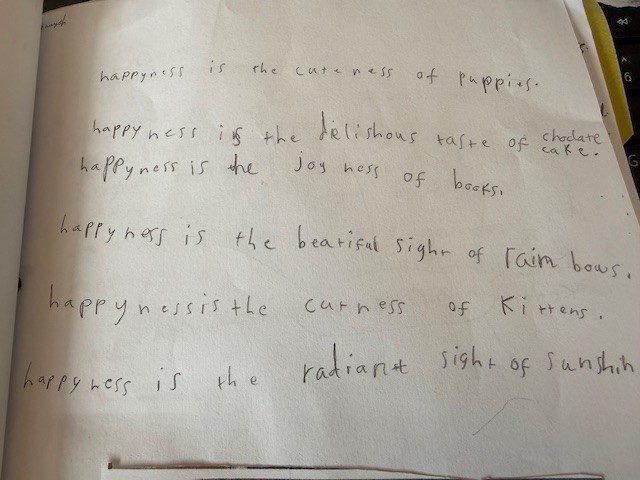 happyness is the cuteness of puppies.
happyness is the delishous taste of choclate
cake.
happyness is the joyness of books.
happyness is the beatiful sight of rainbows.
happyness is the cutness of kittens.
happyness is the radiant sight of sunshin